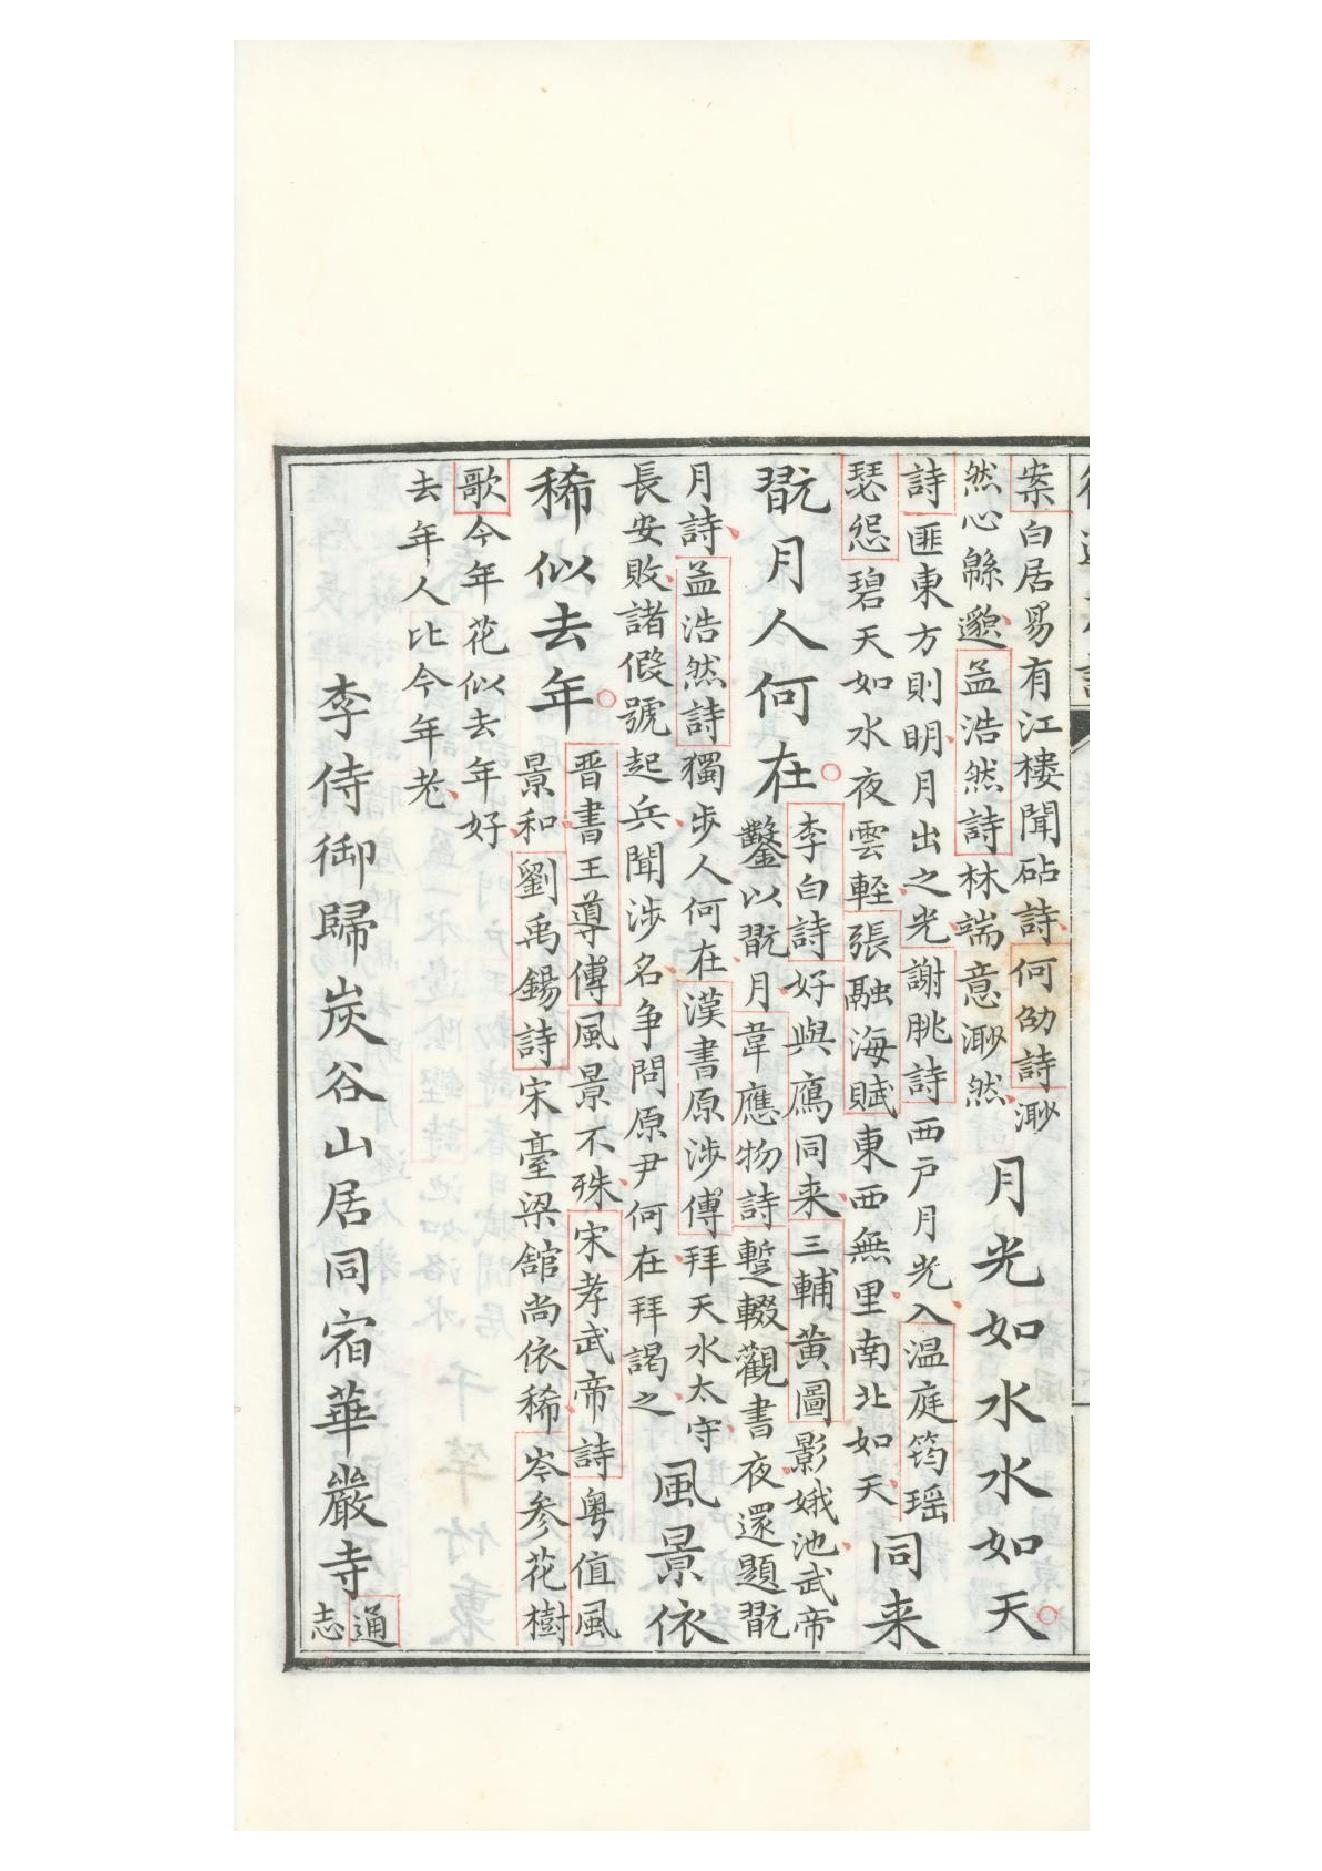 案白居易有江樓聞砧詩何劭詩渺
然心緜邈孟浩然詩林端意渺然
月光如水水如天
詩匪東方則明月出之光謝朓詩西戶月光入温庭筠瑶
瑟怨碧天如水夜雲輕張融海賦東西無里南北如天
同来
翫月人何在
李白詩好與鴈同来三輔黃圖影娥池武帝
鑿以翫月韋應物詩蹔輟觀書夜還題翫
月詩孟浩然詩獨步人何在漢書原涉傳拜天水太守
長安敗諸假號起兵聞涉名争問原尹何在拜謁之
風景依
稀似去年
晋書王導傳風景不殊宋孝武帝詩粤值風
景和劉禹錫詩宋臺梁舘尚依稀岑参花樹
歌今年花似去年好
去年人比今年老
李侍御歸炭谷山居同宿華嚴寺
通
志